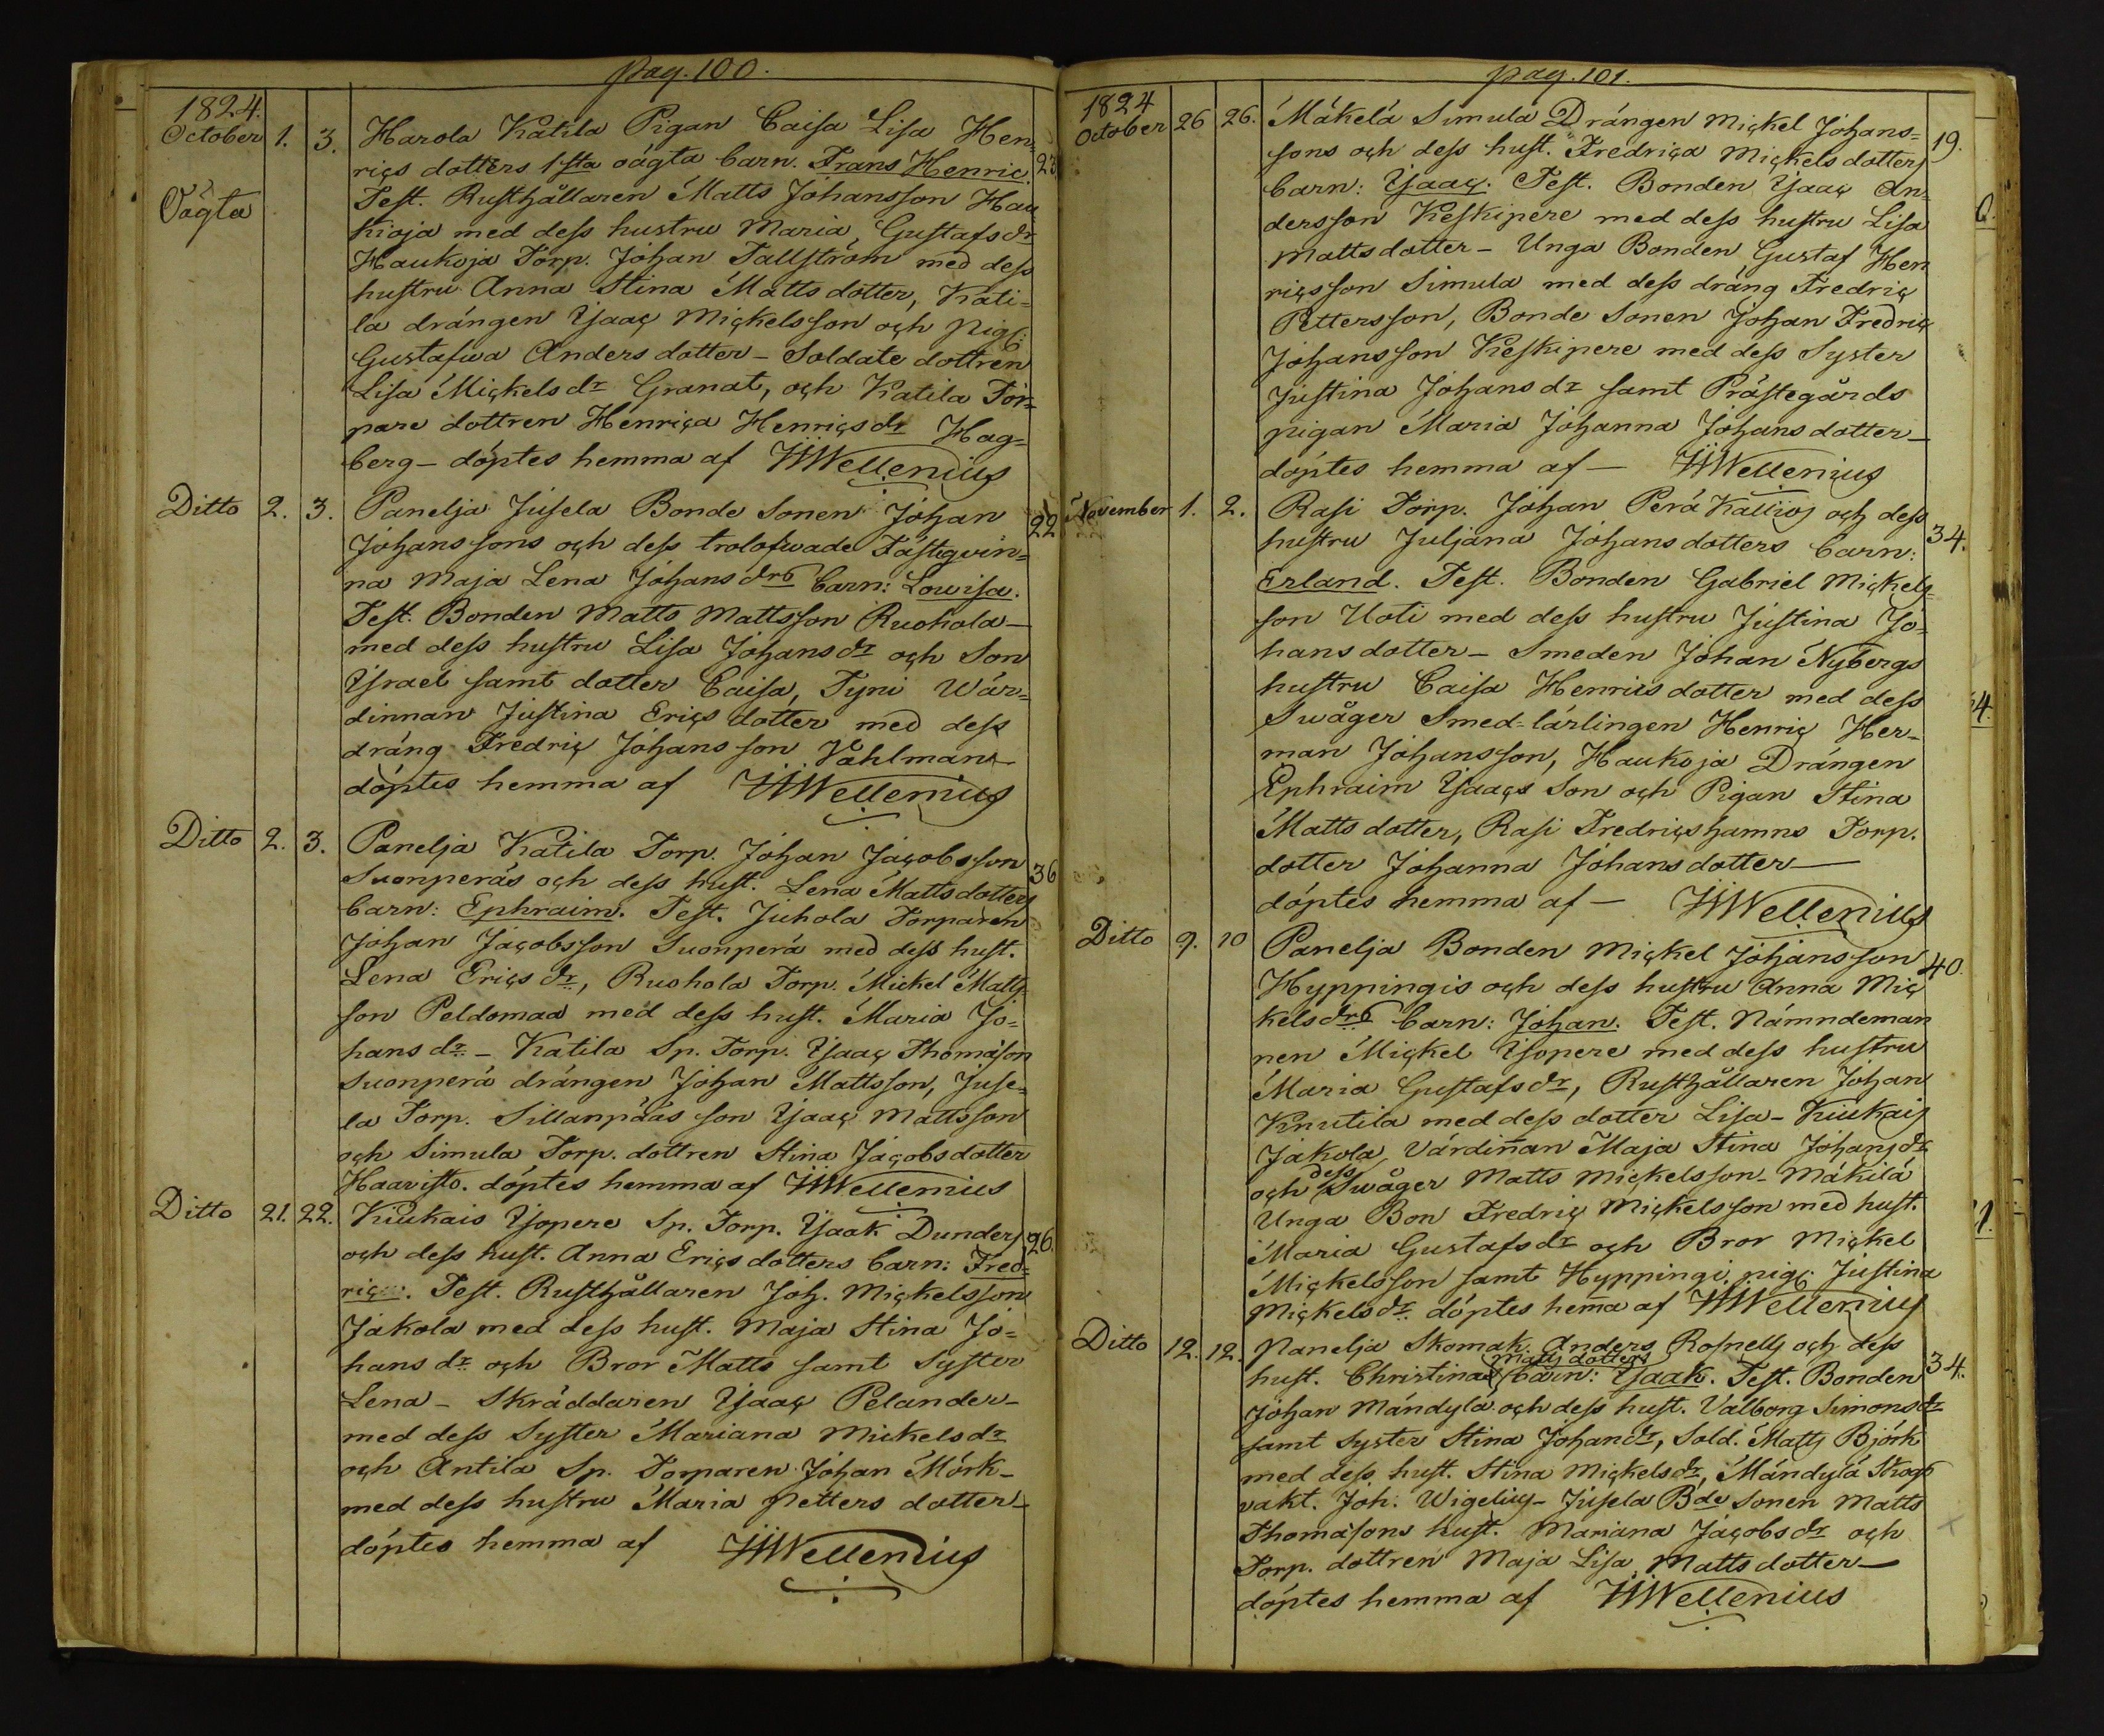 pag. 100.
1824.
October 1. 3. Harola Katila Pigan Caisa Lisa Hen-
rics dotters 1sta oägta barn. Frans Henric. 23.
Oägta
Test. Rusthållaren Matts Johansson Hau
kioja med dess hustru Maria, Gustafsdr
Haukoja Torp. Johan Tallström med dess
hustru Anna Stina Matts dotter, Kati-
la drängen Isaac Mickelsson och pig.
Gustafwa Anders dotter - Soldate dottren
Lisa Mickelsdr Granat, och Katila Tor-
pare dottren Henrica Henricsdr Hag-
berg - döptes hemma af Wellenius
Ditto 2. 3. Panelja Jusela Bonde Sonen Johan 22
Johanssons och dess trolofwade Fästeqvin-
na Maja Lena Johansdrs barn: Lowisa.
Test. Bonden Matts Mattsson Ruohola -
med dess hustru Lisa Johansdr och Son
Israel samt dotter Caisa, Tyni Wär-
dinnan Justina Erics dotter med dess
dräng Fredric Johansson Vahlman -
döptes hemma af Wellenius
Ditto 2. 3. Panelja Katila Torp. Johan Jacobsson 36
Suonperäs och dess hust. Lena Mattsdotters
barn: Ephraim. Test. Juhola Torparen
Johan Jacobsson Suonperä med dess hust.
Lena Ericsdr, Ruohola Torp. Mickel Matts
son Peldomaa med dess hust. Maria Jo-
hansdr - Katila Sp. Torp. Isaac Thomasson
Suonperä drängen Johan Mattsson, Juse-
la Torp. Sillanpääs son Isaac Mattsson
och Simula Torp. dottren Stina Jacobsdotter
Haavisto. döptes hemma af Wellenius
Ditto 21. 22. Kiukais Isopere Sp. Torp. Isaak Dunders 26.
och dess hust. Anna Erics dotters barn: Fred-
ric. Test. Rusthållaren Joh. Mickelsson
Jakola med dess hust. Maja Stina Jo-
hansdr och Bror Matts samt Syster
Lena - Skräddaren Isaac Pelander -
med dess Syster Mariana Mickelsdr
och Antila Sp. Torparen Johan Mörk -
med dess hustru Maria Petters dotter -
döptes hemma af Wellenius
pag. 101.
1824
October 26 26. Mäkelä Simula Drängen Mickel Johans- 19.
sons och dess hust. Fredrica Mickels dotters
barn: Isaac. Test. Bonden Isaac An-
dersson Keskipere med dess hustru Lisa
Matts dotter - Unga Bonden Gustaf Hen
ricsson Simula med dess dräng Fredric
Pettersson, Bonde Sonen Johan Fredric
Johansson Keskipere med dess Syster
Justina Johansdr samt Prästegårds
pigan Maria Johanna Johansdotter -
döptes hemma af - Wellenius
November 1. 2. Rasi Torp. Johan Perä Kallios och dess 34.
hustru Juljana Johansdotters barn:
Erland. Test. Bonden Gabriel Mickels-
son Uoti med dess hustru Justina Jo-
hansdotter - Smeden Johan Nybergs
hustru Caisa Henricsdotter med dess
Swåger Smed-lärlingen Henric Her-
man Johansson, Haukoja Drängen
Ephraim Isaacs Son och Pigan Stina
Matts dotter, Rasi Fredricshamns Torp.
dotter Johanna Johansdotter -
döptes hemma af - Wellenius
Ditto 9. 10 Panelja Bonden Mickel Johansson 40.
Hyppingis och dess hustru Anna Mic
kelsdrs barn: Johan. Test. Nämndeman
nen Mickel Isopere med dess hustru
Maria Gustafsdr, Rusthållaren Johan
Knutila med dess dotter Lisa - Kiukais
Jakola Värdinan Maja Stina Johansdr
och dess Swåger Matts Mickelsson - Mäkilä
Unga Bon Fredric Mickelsson med hust.
Maria Gustafsdr och Bror Mickel
Mickelsson samt Hyppingi pig. Justina
Mickelsdr. döptes hema af Wellenius
Ditto 12. 12. Panelja Skomak. Anders Rosnells och dess 34.
hust. Christina Matts dotters barn: Isaak. Test. Bonden
Johan Mändylä och dess hust. Valborg Simonsdr
samt Syster Stina Johandr, Sold. Matts Björk
med dess hust. Stina Mickelsdr, Mändylä Skogs
vakt. Joh. Wigelius - Jusela Bde Sonen Matts
Thomasons hust. Mariana Jacobsdr och
Torp. dottren Maja Lisa Matts dotter -
döptes hemma af Wellenius